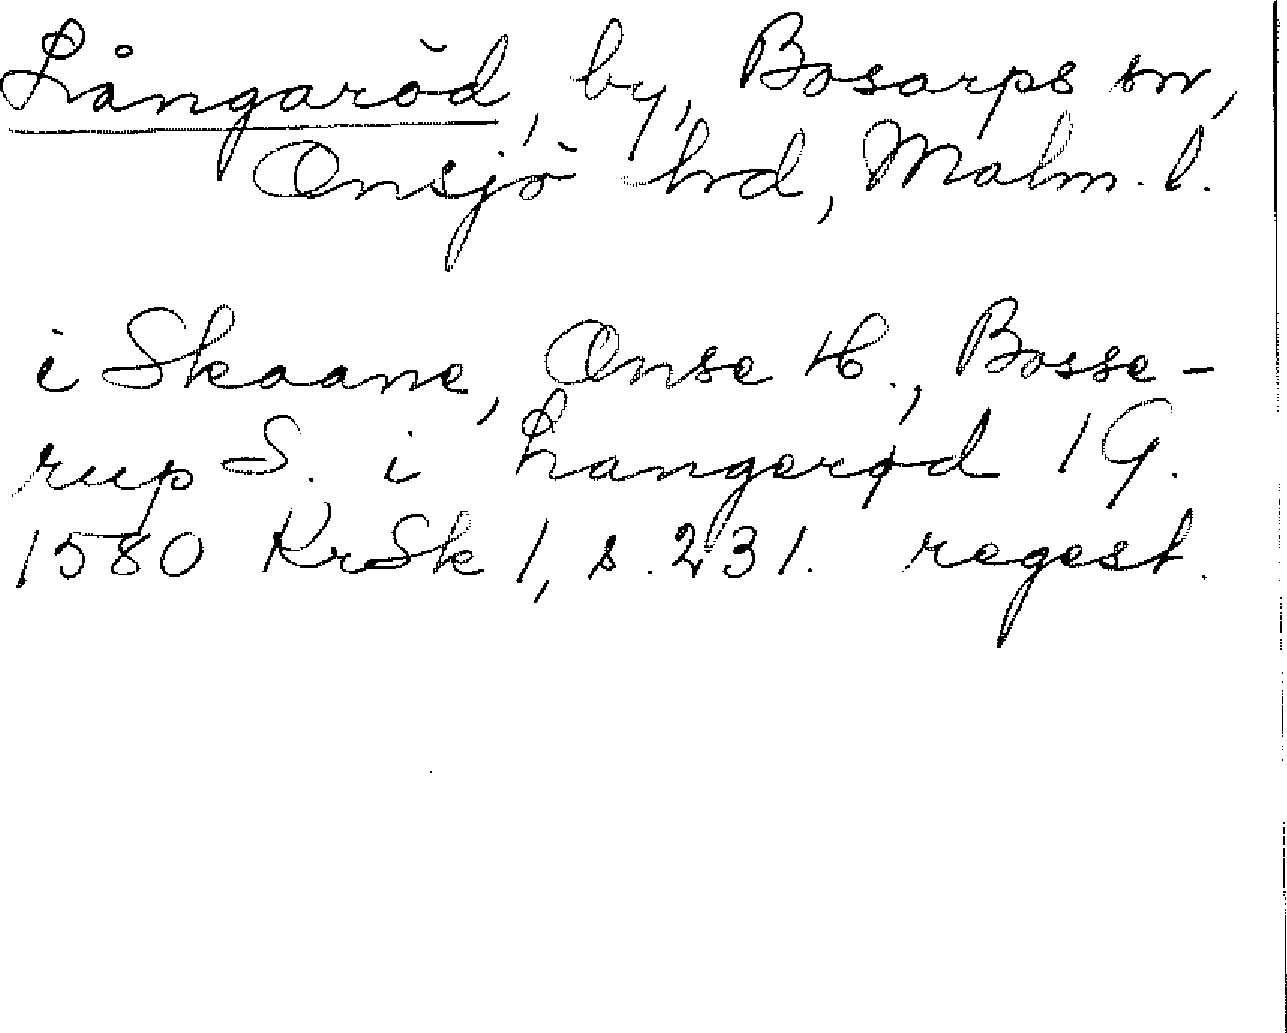 Långaröd, by, Bosarps sn,
Onsjö hrd, Malm. l.
i Skaane, Onse H., Bosse-
rup S. i Langerød 1 G.
1580 KrSk 1, s. 231. regest.